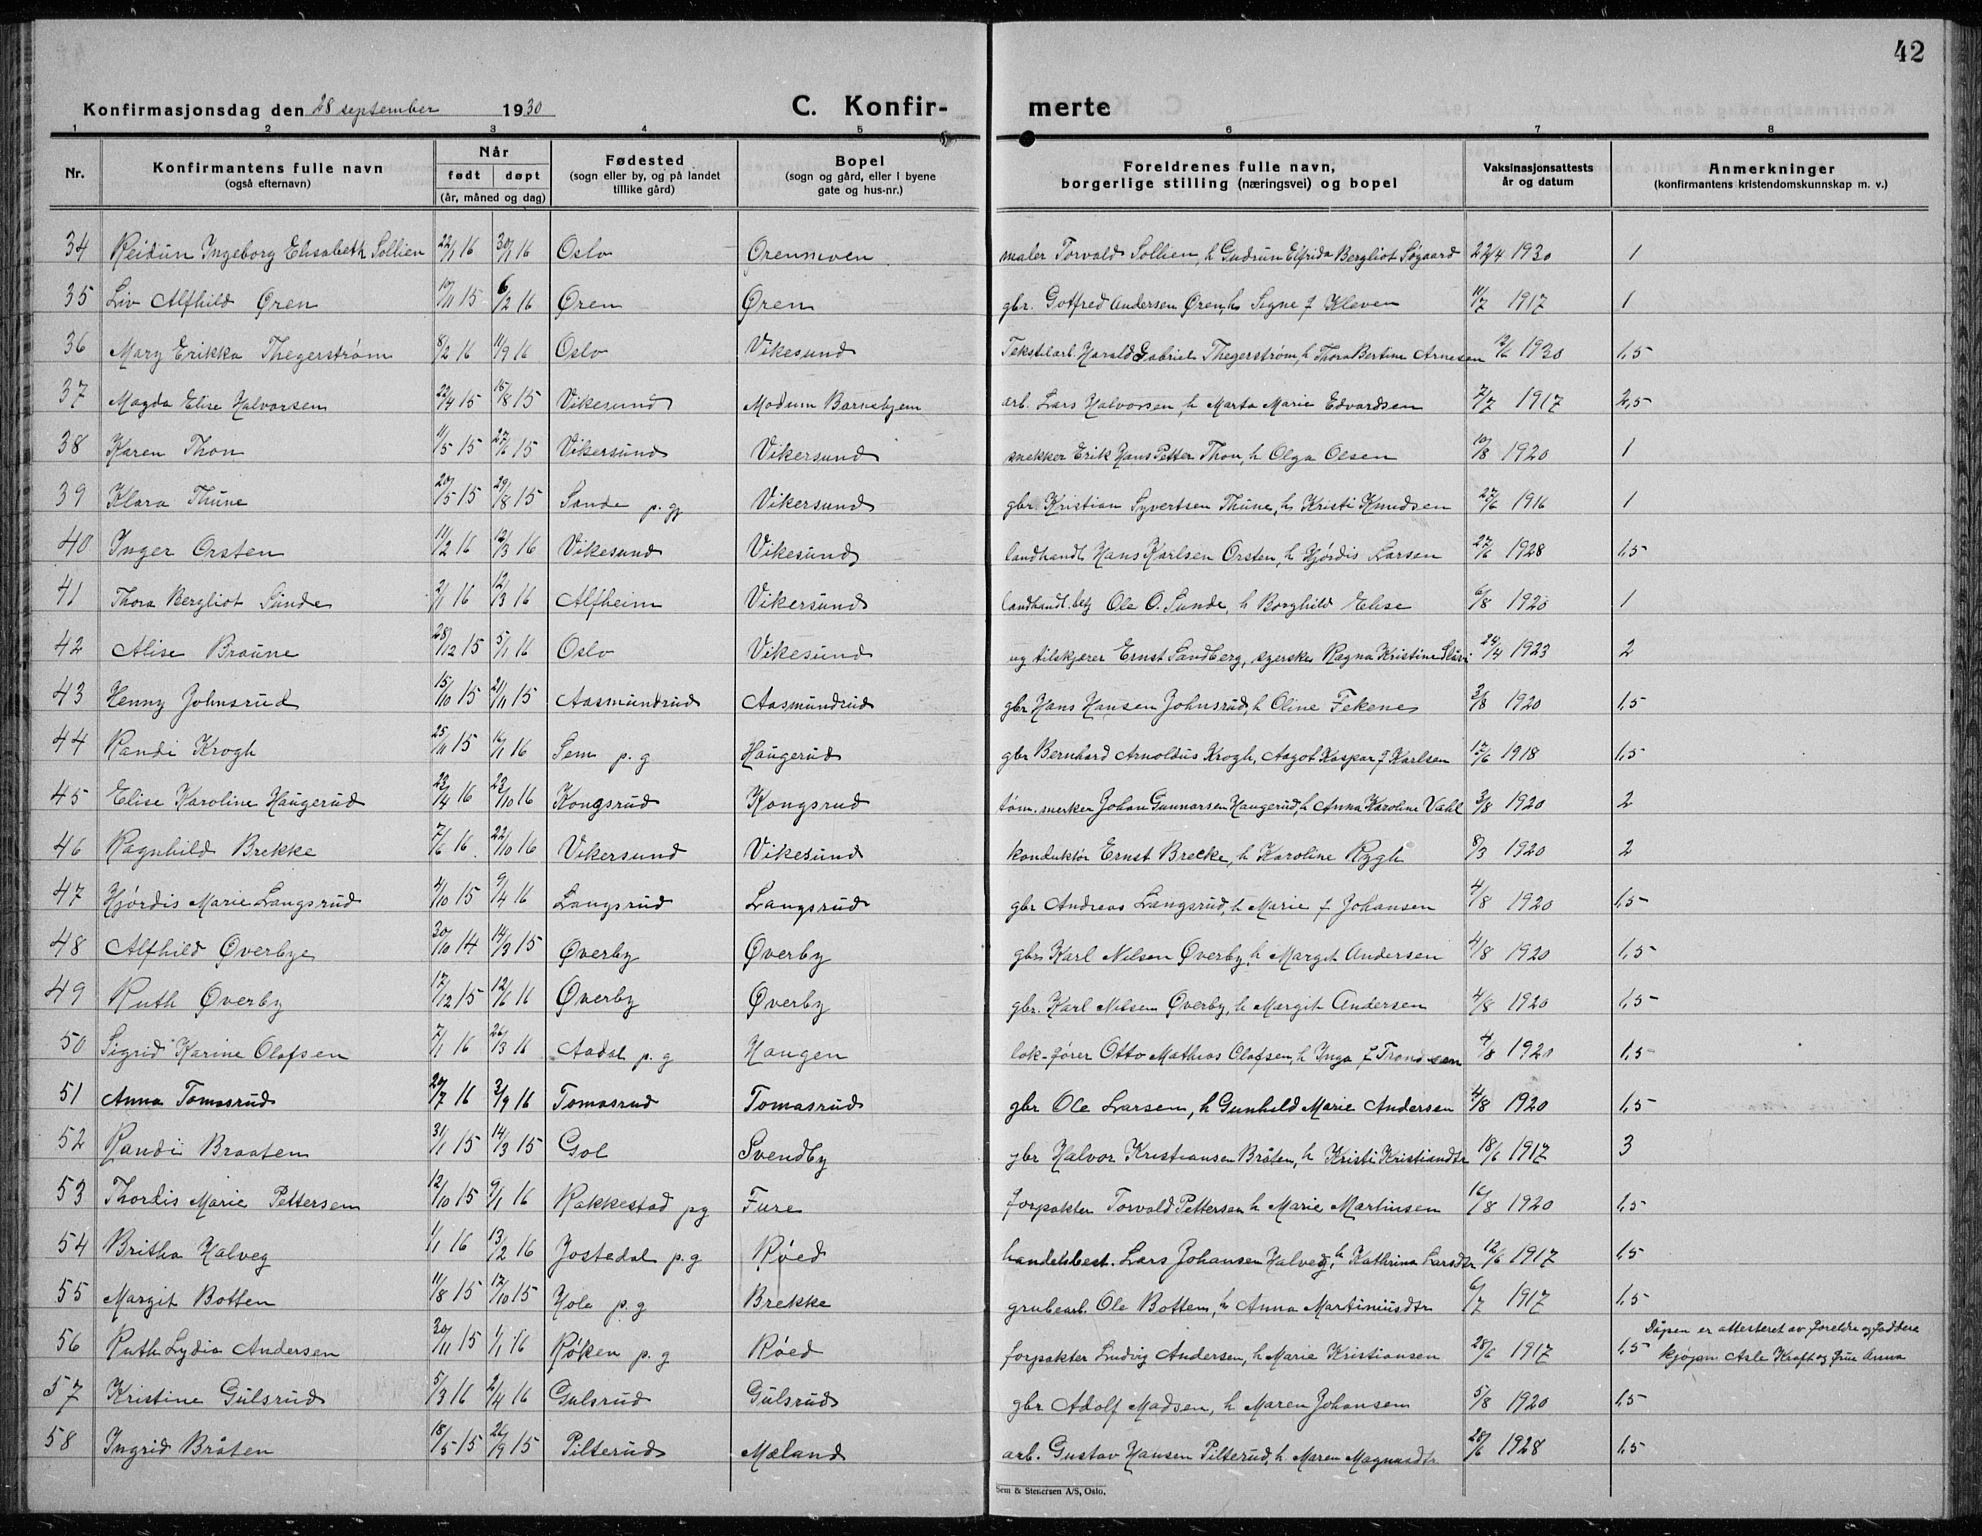 42
Konfirmasjonsdag den 28 september 1930 C. Konfir- merte
1 2 3 4 5 6 7 8
Nr. Konfirmantens fulle navn (også efternavn) Når født døpt (år, måned og dag) Fødested (sogn eller by, og på landet tillike gård) Bopel (sogn og gård, eller i byene gate og hus-nr.) Foreldrenes fulle navn, borgerlige stilling (næringsvei) og bopel Vaksinasjonsattests år og datum Anmerkninger (konfirmantens kristendomskunnskap m. v.)
34 Reidun Ingeborg Elisabeth Sollien 22/1 16 30/7 16 Oslo Orenmoen maler Torvald Sollien, h Gudrun Elfrida Bergliot Søgaard 22/4 1930 1
35 Liv Alfhild Øren 17/11 15 6/2 16 Øren Øren gbr. Gotfred Andersen Øren, h Signe f Kleven 11/7 1917 1
36 Mary Erikka Thegerstrøm 8/2 16 11/9 16 Oslo Vikesund Tekstilarb. Harald Gabriel Thegerstrøm, h Thora Bertine Arnesen 12/6 1930 1,5
37 Magda Elise Halvorsen 22/4 15 15/8 15 Vikesund Modum Barnehjem arb. Lars Halvorsen, h Marta Marie Edvardsen 7/7 1917 2,5
38 Karen Thon 11/5 15 27/6 15 Vikersund Vikersund snekker Erik Hans Petter Thon, h Olga Olsen 10/8 1920 1
39 Klara Thune 20/5 15 29/8 15 Sande p. g Vikersund gbr Kristian Syvertsen Thune, h Kristi Knudsen 27/6 1916 1
40 Inger Orsten 11/2 16 12/3 16 Vikesund Vikesund landhandl Hans Karlsen Orsten, h Hjørdis Larsen 27/6 1928 1,5
41 Thora Bergliot Sunde 2/1 16 12/3 16 Alfheim Vikersund landhandl. betj Ole O. Sunde, h Borghild Elise 6/8 1920 1
42 Alise Braune 28/12 15 5/1 16 Oslo Vikesund ug tilskjærer Ernst Sandberg, syerske Ragna Kristine 24/4 1923 2
43 Henny Johnsrud 15/10 15 21/11 15 Aasmundrud Aasmundrud gbr Hans Hansen Johnsrud, h Oline Fekene 3/8 1920 1,5
44 Randi Krogh 25/11 15 16/1 16 Sem p. g Haugerud gbr Bernhard Arnoldus Krogh, Aagot Kaspar f Karlsen 17/6 1918 1,5
45 Elise Karoline Haugerud 23/4 16 22/10 16 Kongsrud Kongsrud tøm. merker Johan Gunnarsen Haugerud, h Anna Karoline Vahl 3/8 1920 2
46 Ragnhild Brekke 7/6 16 22/10 16 Vikersund Vikesund konduktør Ernst Brecke, h Karoline Rygh 8/3 1920 2
47 Hjørdis Marie Langsrud 4/10 15 9/4 16 Langsrud Langsrud gbr Andreas Langsrud, h Marie f Johansen 4/8 1920 1,5
48 Alfhild Øverbye 30/10 14 14/3 15 Øverby Øverby gbr Karl Nilsen Øverby, h Margit Andersen 4/8 1920 1,5
49 Ruth Øverby 17/12 15 12/6 16 Øverby Øverby gbr. Karl Nilsen Øverby, h Margit Andersen 4/8 1920 1,5
50 Sigrid Karine Olafsen 7/1 16 26/3 16 Aadal p. g Haugen lok-fører Otto Mathias Olafsen, h Inga f Trondsen 4/8 1920 1,5
51 Anna Tomasrud 20/7 16 3/9 16 Tomasrud Tomasrud gbr Ole Larsen, h Gunhild Marie Andersen 4/8 1920 1,5
52 Randi Braaten 31/1 15 14/3 15 Gol Svendby gbr Halvor Kristiansen Bråten, h Kristi Kristiandtr 18/6 1917 3
53 Thordis Marie Pettersen 12/10 15 9/1 16 Rakkestad pg Fure forpakter Torvald Pettersen h Marie Martinsen 16/8 1920 1,5
54 Britha Halveg 1/1 16 13/2 16 Jostedal p. g Røed handelsbest. Lars Johansen Halveg, h Kathrina Larsdtr 12/6 1917 1,5
55 Margit Botten 11/8 15 17/10 15 Hole p. g Brekke grubearb. Ole Botten, h Anna Martiniusdtr 6/7 1917 1,5
56 Ruth Lydia Andersen 30/11 15 1/1 16 Røken p. g Røed forpakter Ludvig Andersen, h Marie Kristiansen 28/6 1917 1,5 Dåpen er attesteret av foreldre og faddere kjøpm Asle Kraft og frue Anna
57 Kristine Gulsrud 5/3 16 2/4 16 Gulsrud Gulsrud gbr Adolf Madsen, h Maren Johansen 5/8 1920 1,5
58 Ingrid Bråten 18/5 15 26/9 15 Pilterud Mæland arb. Gustav Hansen Pilterud, h. Maren Magnusdtr 20/6 1928 1,5
Sem & Stenersen A/S, Oslo.